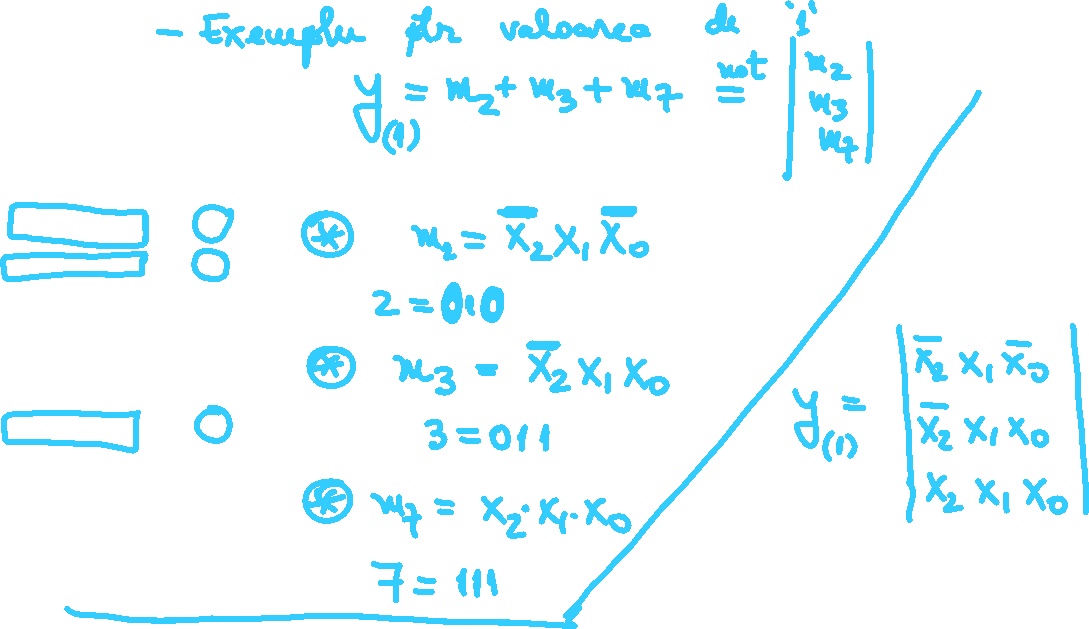 - Exemplu ptr valoarea de '1'
y(1) = m2 + m3 + m7 not= | m2 m3 m7 |
m2 = X̅2 X1 X̅0
2 = 010
m3 = X̅2 X1 X0
3 = 011
m7 = X2·X1·X0
7 = 111
y(1) =
X̅2 X1 X̅0
X̅2 X1 X0
X2 X1 X0